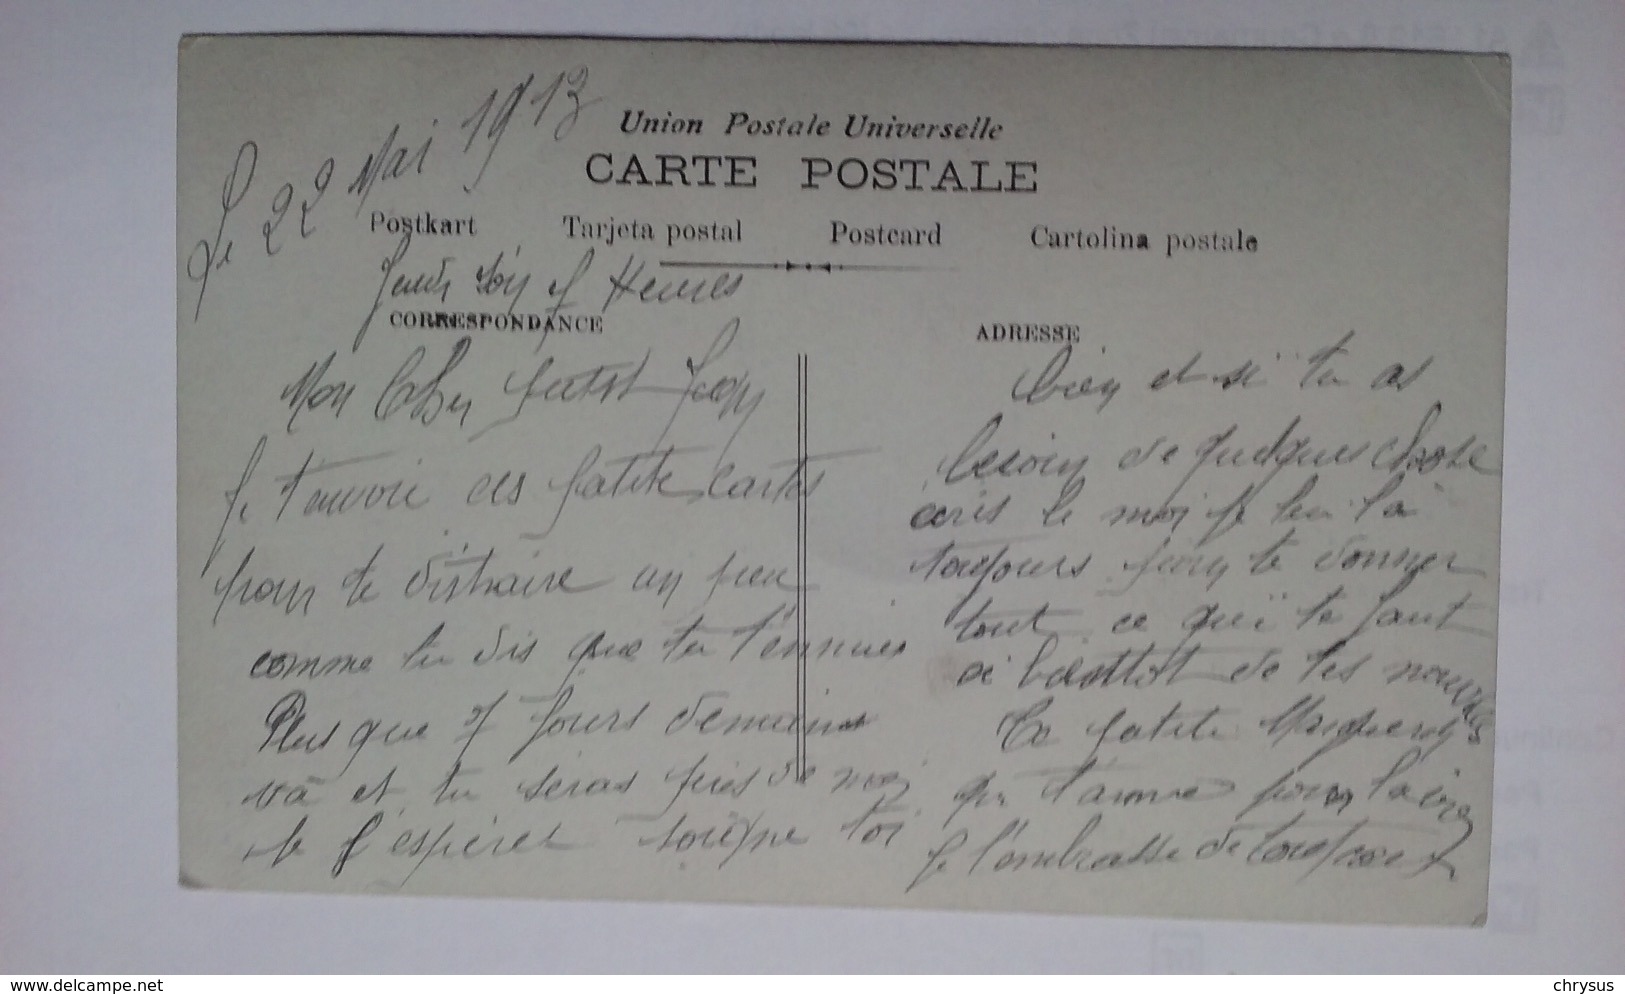 Le 22 Mai 1913
Union Postale Universelle
CARTE POSTALE
Postkart Tarjeta postal Postcard Cartolina postale
Jeudi Heures
CORRESPONDANCE
ADRESSE
Mon Cher petit
Je t'envoie ces petite cartes
pour te distraire un peu
comme tu dis que tu t'ennuies
Plus que 7 jours demains
va et tu seras près de moi
je l'espère soigne toi
bien et si tu as
besoin de quelques chose
écris le moi je
toujours pour te donner
tout ce qui te faut
a bientot de tes nouvelles
Ta petite
qui t'aime pour la vie
Je t'embrasse de tout
delcampe.net
chrysus